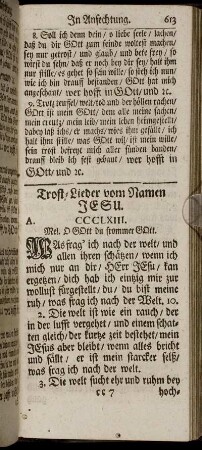 In Anfechtung. 613
8. Soll ich denn dein / o liebe seele / lachen /
daß du die GOtt zum feinde woltest machen /
sey nur getrost / und glaub / und bete frey / so
wirst du sehn / daß er noch bey dir sey / halt ihm
nur stille / es gehet so sein wille / so stell ich nun /
wie ich bin drauff bestanden / GOtt hat mich
angesehn / wer hofft in GOtt / und ꝛc.
9. Trotz teuffel / welt / tod und der höllen rachen /
GOtt ist mein GOtt / dem alle meine sachen /
mein creutz / mein leid / mein leben heimgestellt /
dabey laß ichs / er machs / wies ihm gefällt / ich
halt ihm stille / was GOtt will / ist mein wille /
sein trost befreyt mich aller sünden banden /
drauff bleib ich fest gebaut / wer hofft in
GOtt / und ꝛc.
Trost / Lieder vom Namen
JESU.
A. CCCLXIII.
Mel. O GOtt du frommer GOtt.
WAs frag' ich nach der welt / und
allen ihren schätzen / wenn ich
mich nur an dir / HErr JEsu / kan
ergetzen / dich hab ich einzig mir zur
wollust fürgestellt / du / du bist meine
ruh / was frag ich nach der Welt. 10.
2. Die welt ist wie ein rauch / der
in der lufft vergehet / und einem schat-
ten gleich / der kurtze zeit bestehet / mein
JEsus aber bleibt / wenn alles bricht
und fällt / er ist mein starcker felß /
was frag ich nach der welt.
3. Die welt sucht ehr und ruhm bey
cc 7 hoch-